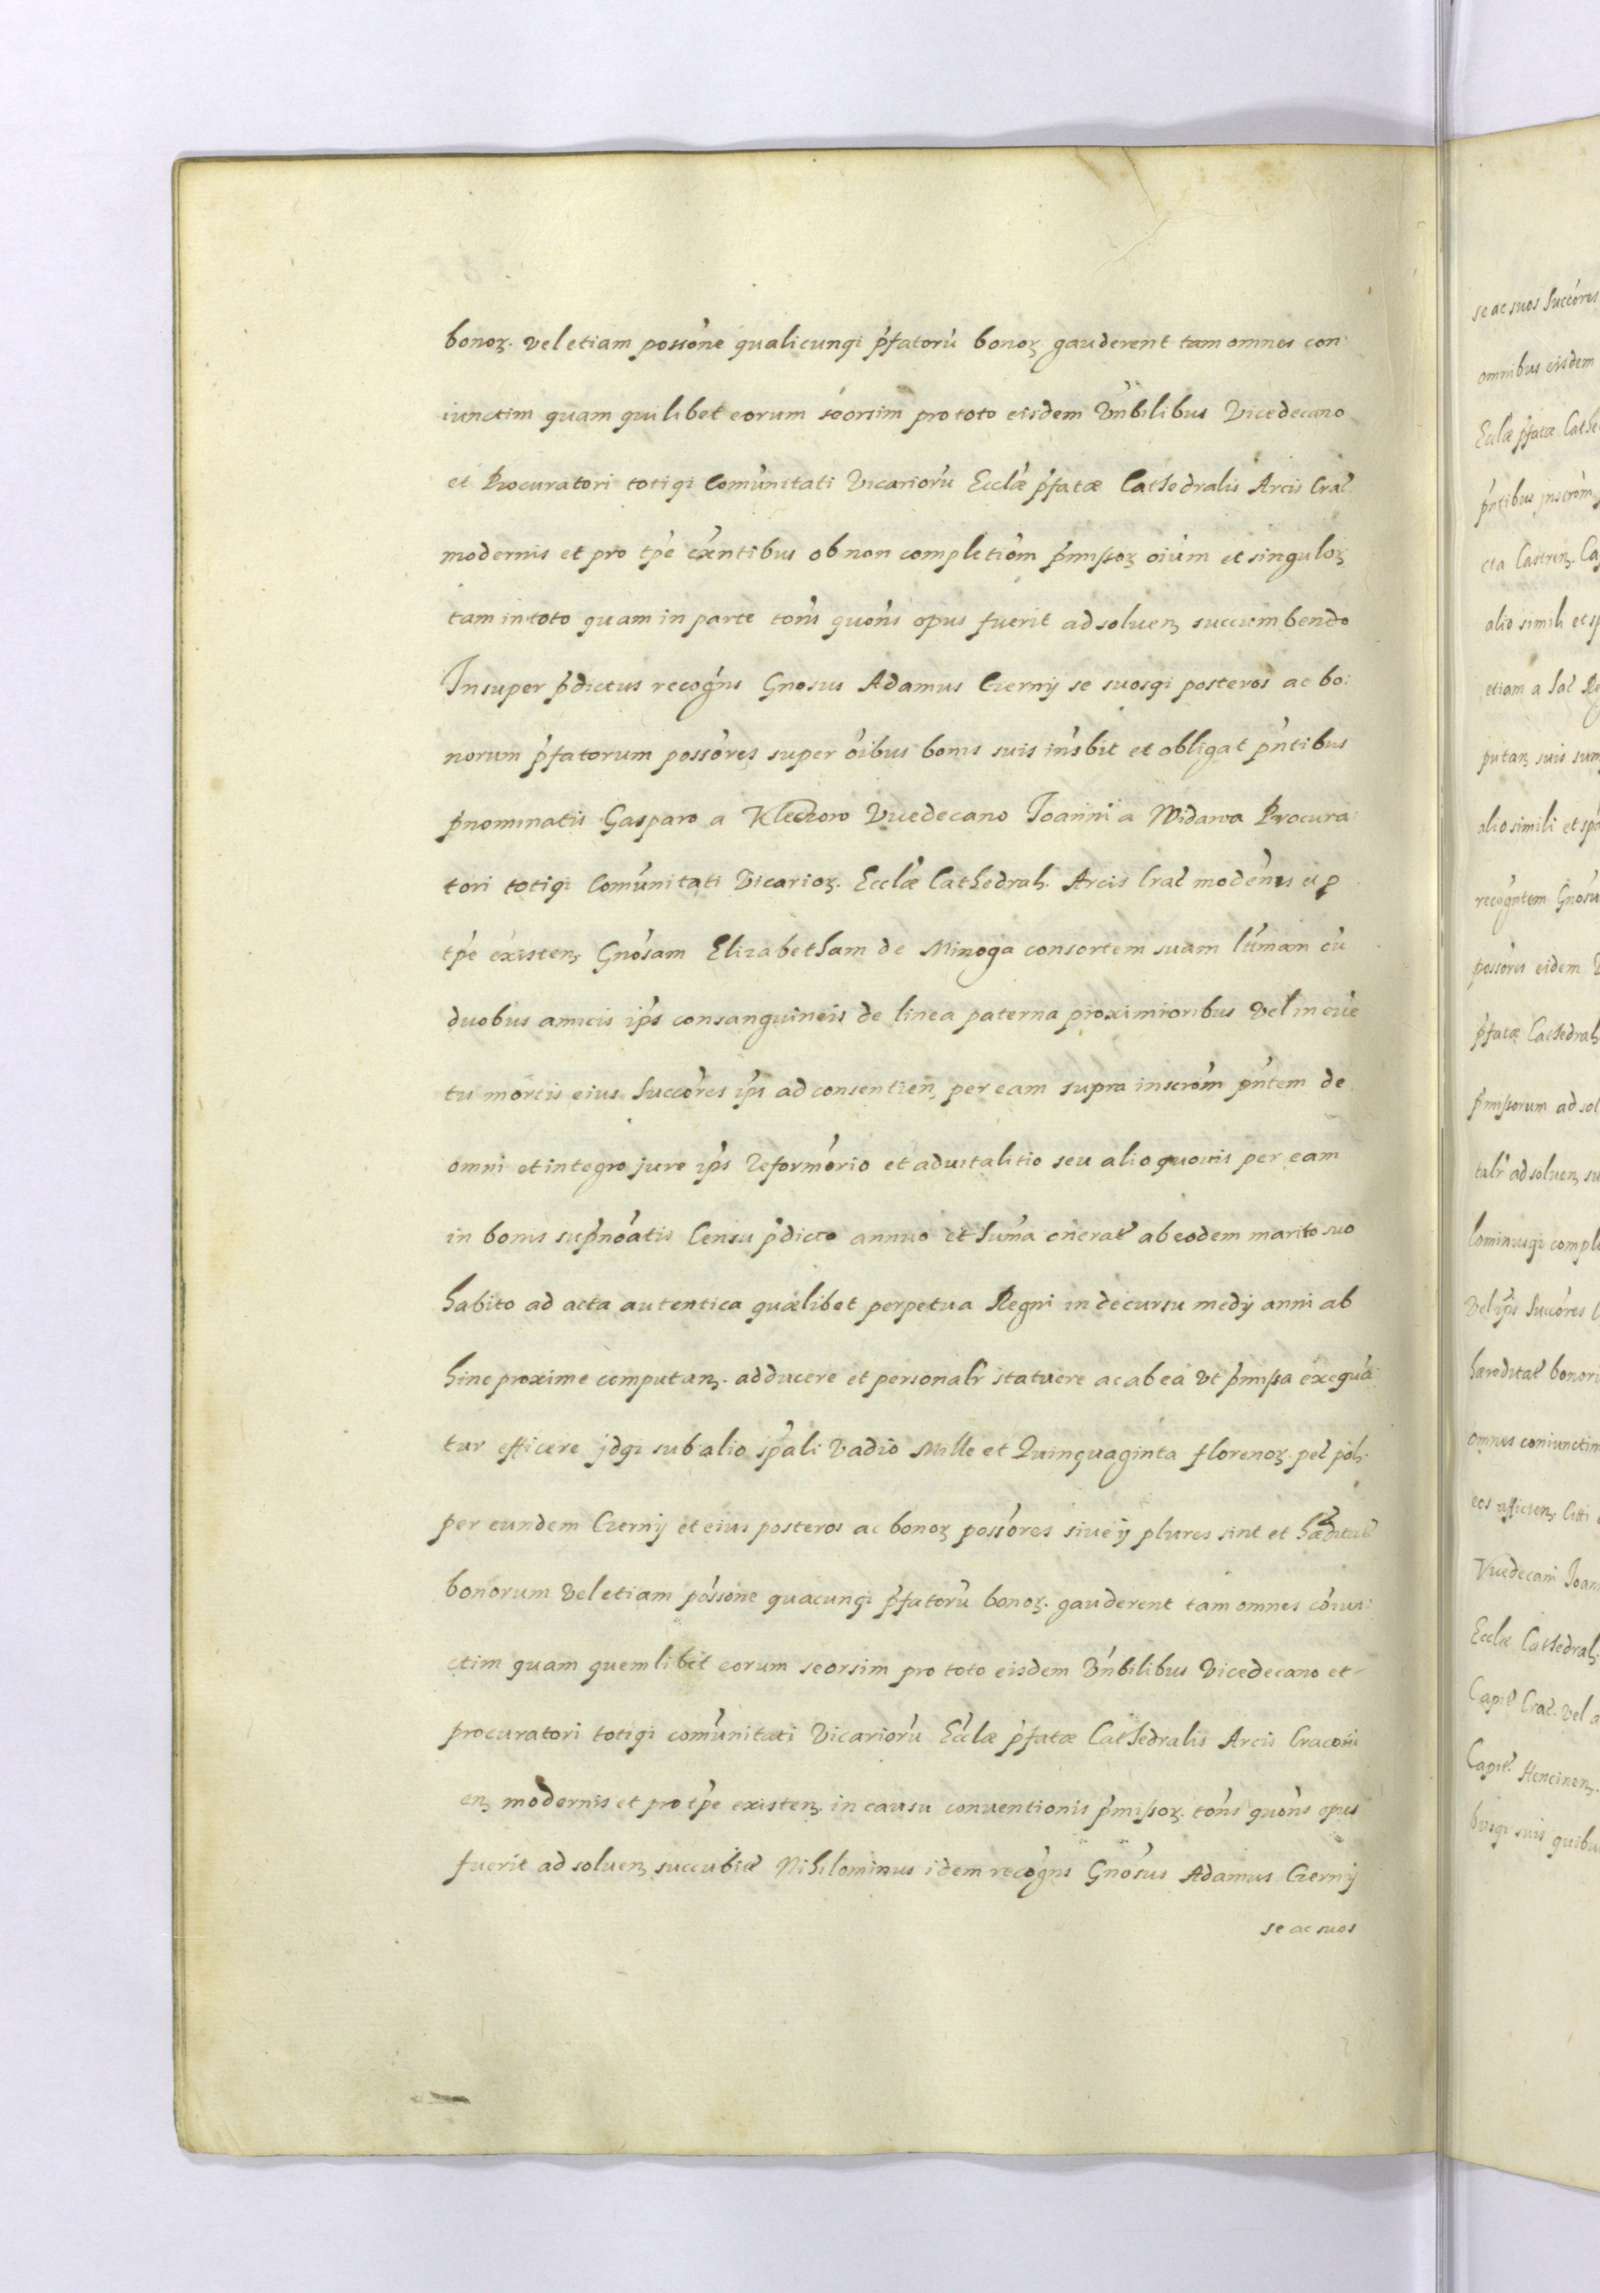 bonoꝝ. vel etiam possone qualicunqꝫ pfatoru bonoꝝ gauderent tam omnes con:
iunctim quam quilibet eorum seorsim pro toto eisdem Vnbilibus Vicedecano
et Procuratori totiqꝫ Comunitati Vicarioru Ecclæ pfatæ Cathedralis Arcis Crac
modernis et pro tpe exntibus ob non completiom pmissoꝝ oium et singuloꝝ
tam in toto quam in parte tons quons opus fuerit ad soluenꝫ succumbendo
Insuper pdictus recogns Gnosus Adamus Czernij se suosqꝫ posteros ac bo:
norum pfatorum possores super oibus bonis suis insbit et obligat pntibus
pnominatis Gasparo a Kleczow Vicedecano Joanni a Widawa Procura:
tori totiqꝫ Comunitati Vicarioꝝ. Ecclæ Cathedral. Arcis Crac modenis et p
tpe existenꝫ Gnosam Elizabetham de Minoga consortem suam ltimam cu
duobus amicis ips consanguineis de linea paterna proximioribus vel in eue
tu mortis eius Succores ips ad consentienꝫ per eam supra inscrom pntem de
omni et integro jure ips reformorio et aduitalitio seu alio quouis per eam
in bonis supnoatis Censu pdicto annuo et Suma onerat ab eodem marito suo
habito ad acta autentica quælibet perpetua Regni in decursu medij anni ab
hinc proxime computanꝫ. adducere et personalr statuere ac ab ea vt pmissa exequa
tur efficere jdqꝫ sub alio spali vadio Mille et Quinquaginta florenoꝝ. pec pol.
per eundem Czernij et eius posteros ac bonoꝝ possores siue ij plures sint et hæditate
bonorum vel etiam possone quacunqꝫ pfatoru bonoꝝ. gauderent tam omnes coiun:
ctim quam quemlibet eorum seorsim pro toto eisdem Vnbilibus Vicedecano et
procuratori totiqꝫ comunitati Vicarioru Ecclæ pfatæ Cathedralis Arcis Cracoui
enꝫ modernis et pro tpe existenꝫ. in causu conuentionis pmissoꝝ. tons quons opus
fuerit ad soluenꝫ succubit Nihilominus idem recogns Gnosus Adamus Czernij
se ac suos
se ac suos Succores
omnibus eisdem
Ecclæ pfatæ Cathe
pntibus inscrom
cta Castrenꝫ. Ca
alio simili et sp
etiam a Sac Re
putanꝫ suis sum
alio simili et spa
recogntem Gnosu
possores eidem V
pfatæ Cathedral
pmissorum ad sol
talr ad soluenꝫ su
lominusqꝫ comple
Vel ips Succores
hæreditat bonoru
omnes coniunctim
eos afficienꝫ. Citi
Vicedecani Joan
Ecclæ Cathedral.
Capit Crac. vel a
Capit Hencinenꝫ.
busqꝫ suis quibu